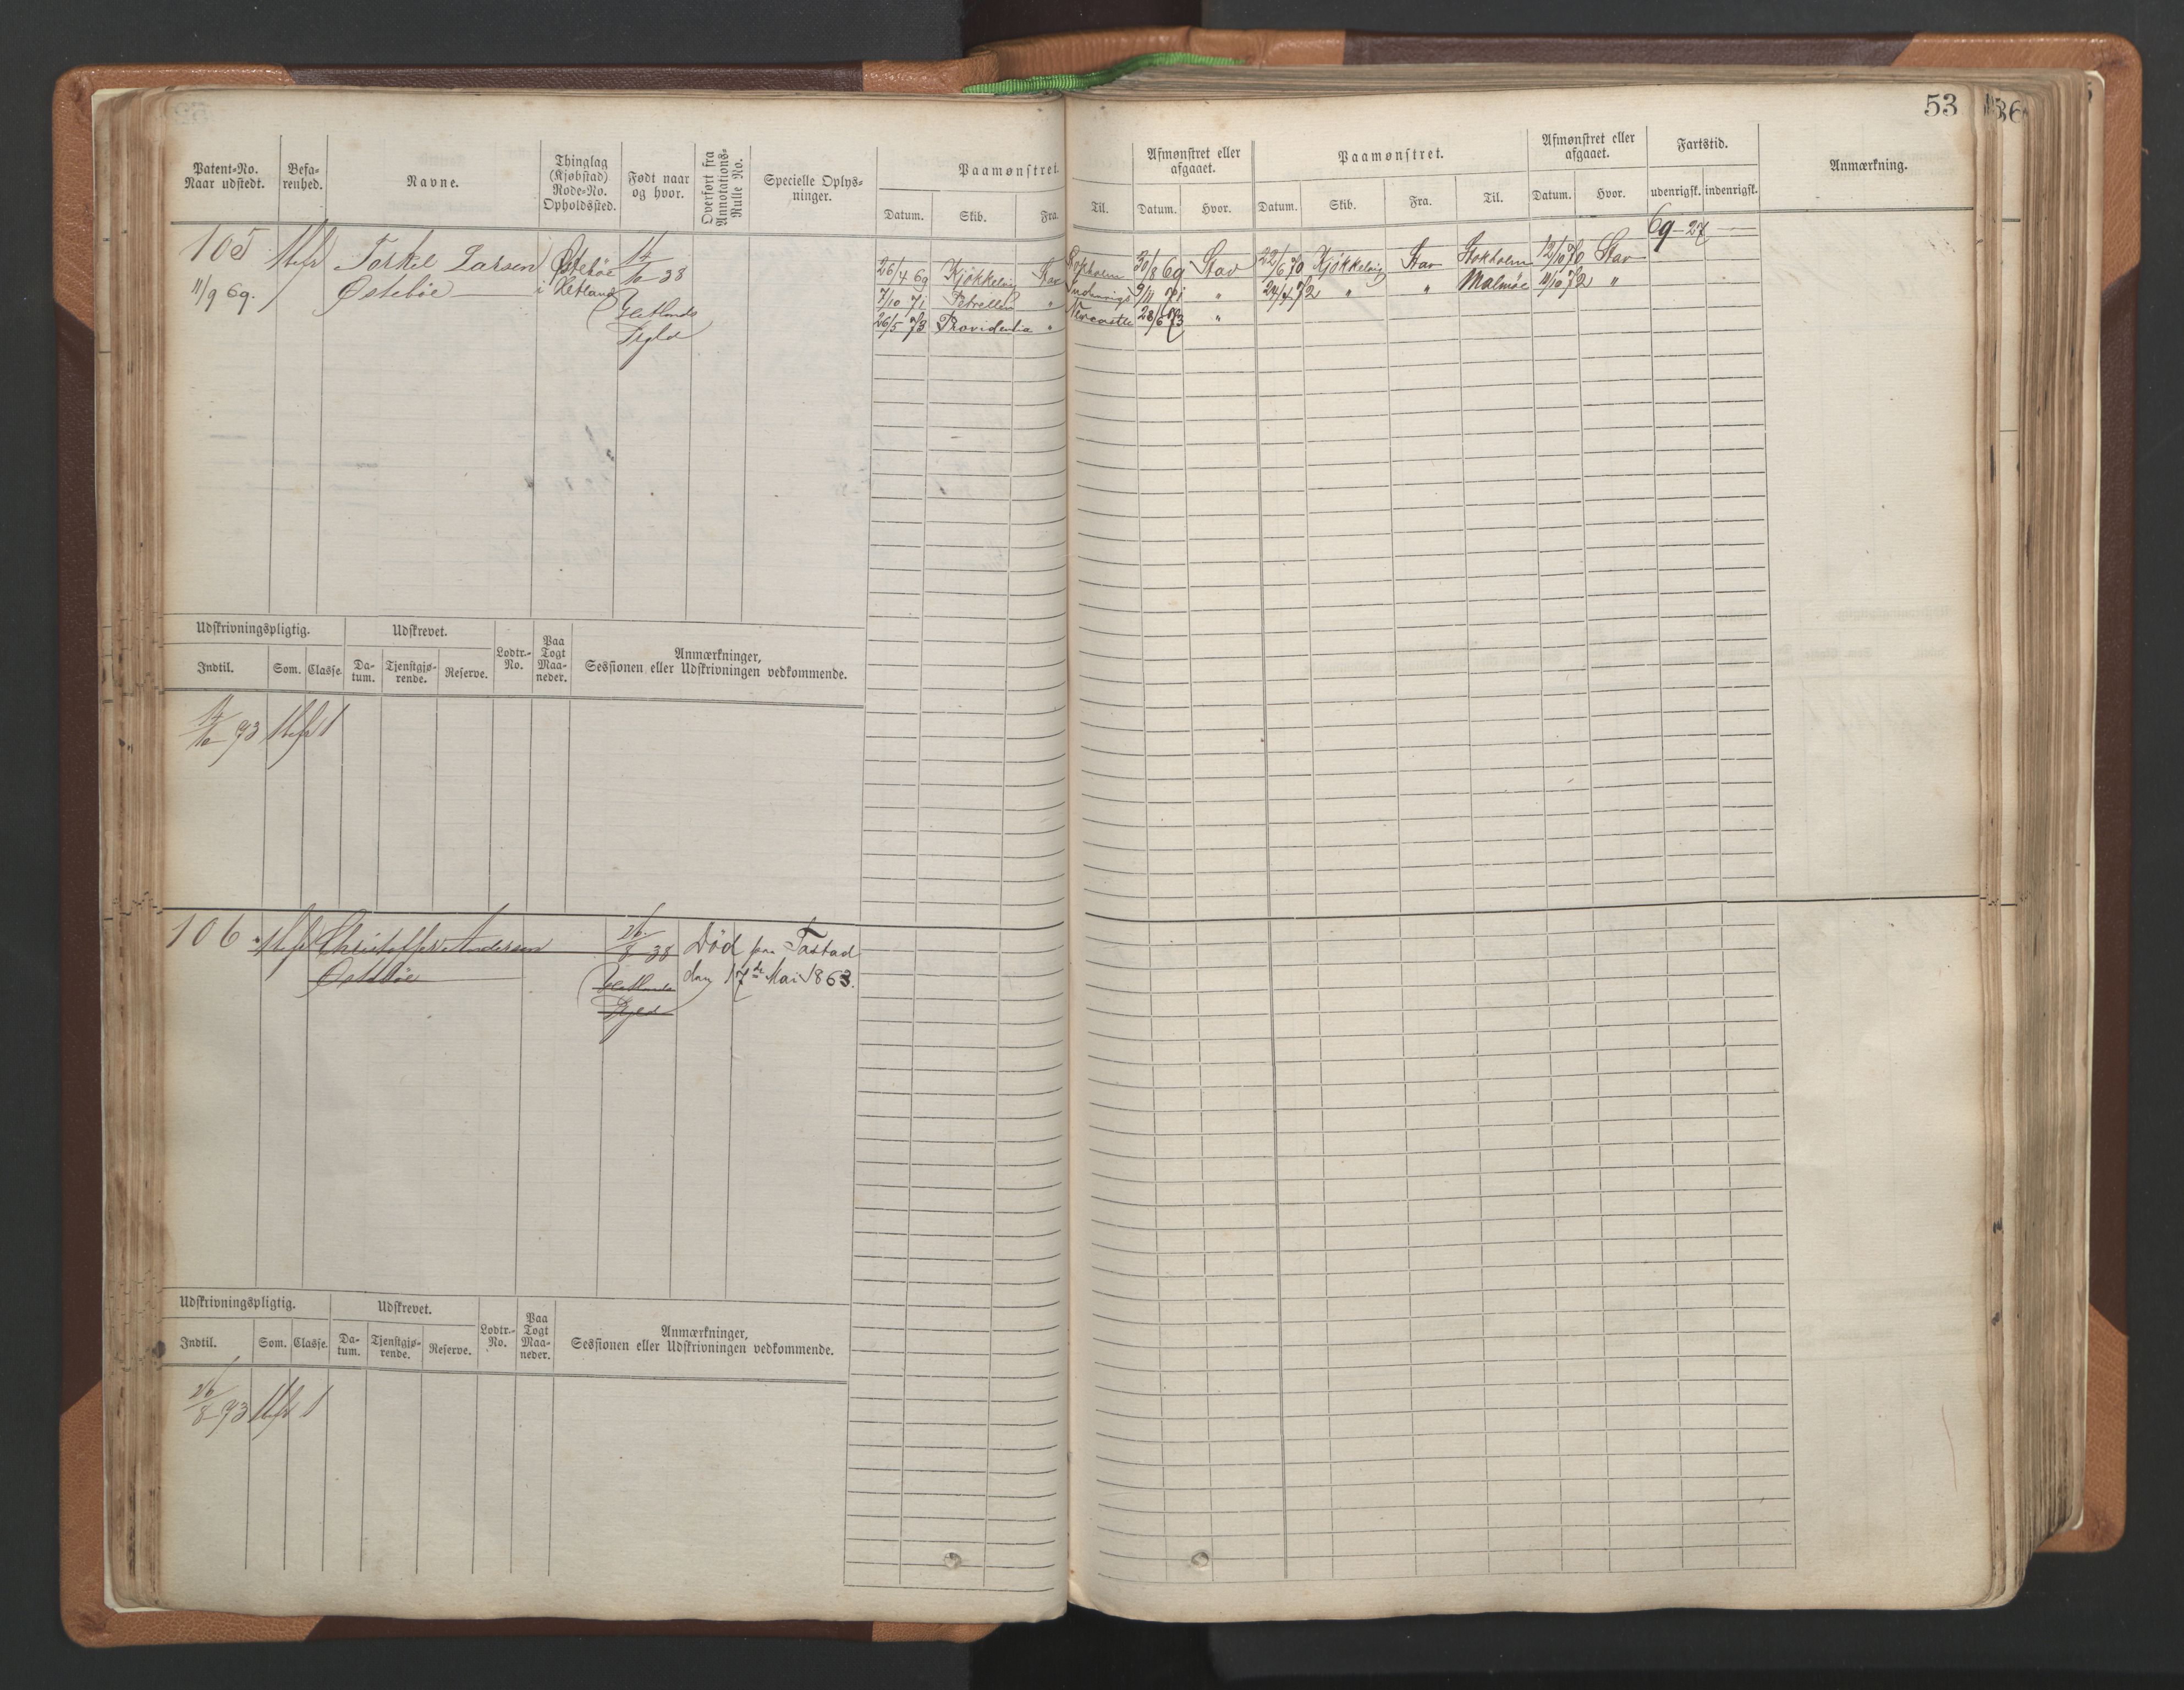 53
Patent-No. Naar udstedt.
Befa-renhed.
Navne.
Thinglag (Kjøbstad) Rode-No. Opholdssted.
Født naar og hvor.
Overført fra Annotations-Rulle No.
Specielle Oplys-ninger.
Paamønstret.
Datum. Skib. Fra. Til.
Afmønstret eller afgaaet.
Datum. Hvor.
Paamønstret.
Datum. Skib. Fra. Til.
Afmønstret eller afgaaet.
Datum. Hvor.
Fartstid.
udenrigsk. indenrigsk.
Anmærkning.
69-27
105 Torkel Larsen Østebøe
11/9 69. Østebøe i Hetland 38
Hetlands
26/4 69 Kjøkkelvig Stav 30/8 69 Stav 22/6 70 Kjøkkelvig Stav Stokholm 12/10 70 Stav
7/10 71 Indenrigs 9/11 71 " 24/4 72 " " Malmöe 11/10 72 "
26/5 73 Providentia " Newcastle 28/6 73 "
Udskrivningspligtig.
Indtil. Som. Classe.
Udskrevet.
Da-tum. Tjenstgjø-rende. Reserve.
Lodtr.-No.
Paa Togt Maa-neder.
Anmærkninger, Sessionen eller Udskrivningen vedkommende.
73 1
106 Christoffer Andersen 26/8 38 Død paa Tastad
Østebøe Hetlands den 17de Mai 1863.
Udskrivningspligtig.
Indtil. Som. Classe.
Udskrevet.
Da-tum. Tjenstgjø-rende. Reserve.
Lodtr.-No.
Paa Togt Maa-neder.
Anmærkninger, Sessionen eller Udskrivningen vedkommende.
26/8 73 1